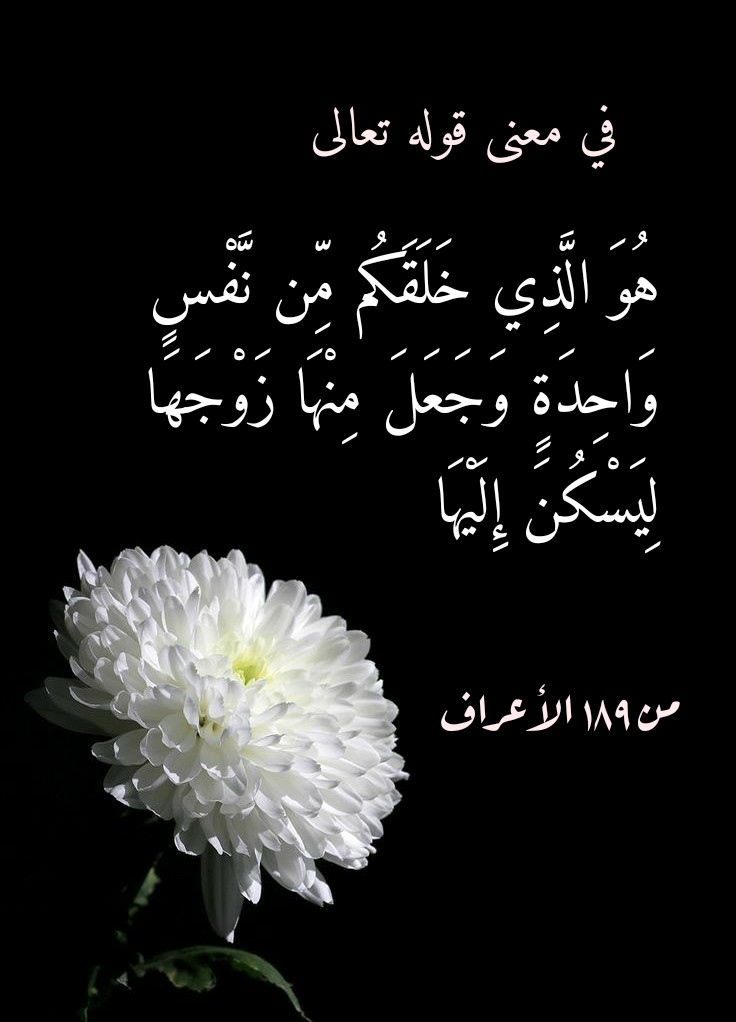 في معنى قوله تعالى
هُوَ الَّذِي خَلَقَكُم مِّن نَّفْسٍ
وَاحِدَةٍ وَجَعَلَ مِنْهَا زَوْجَهَا
لِيَسْكُنَ إِلَيْهَا
من ١٨٩ الأعراف